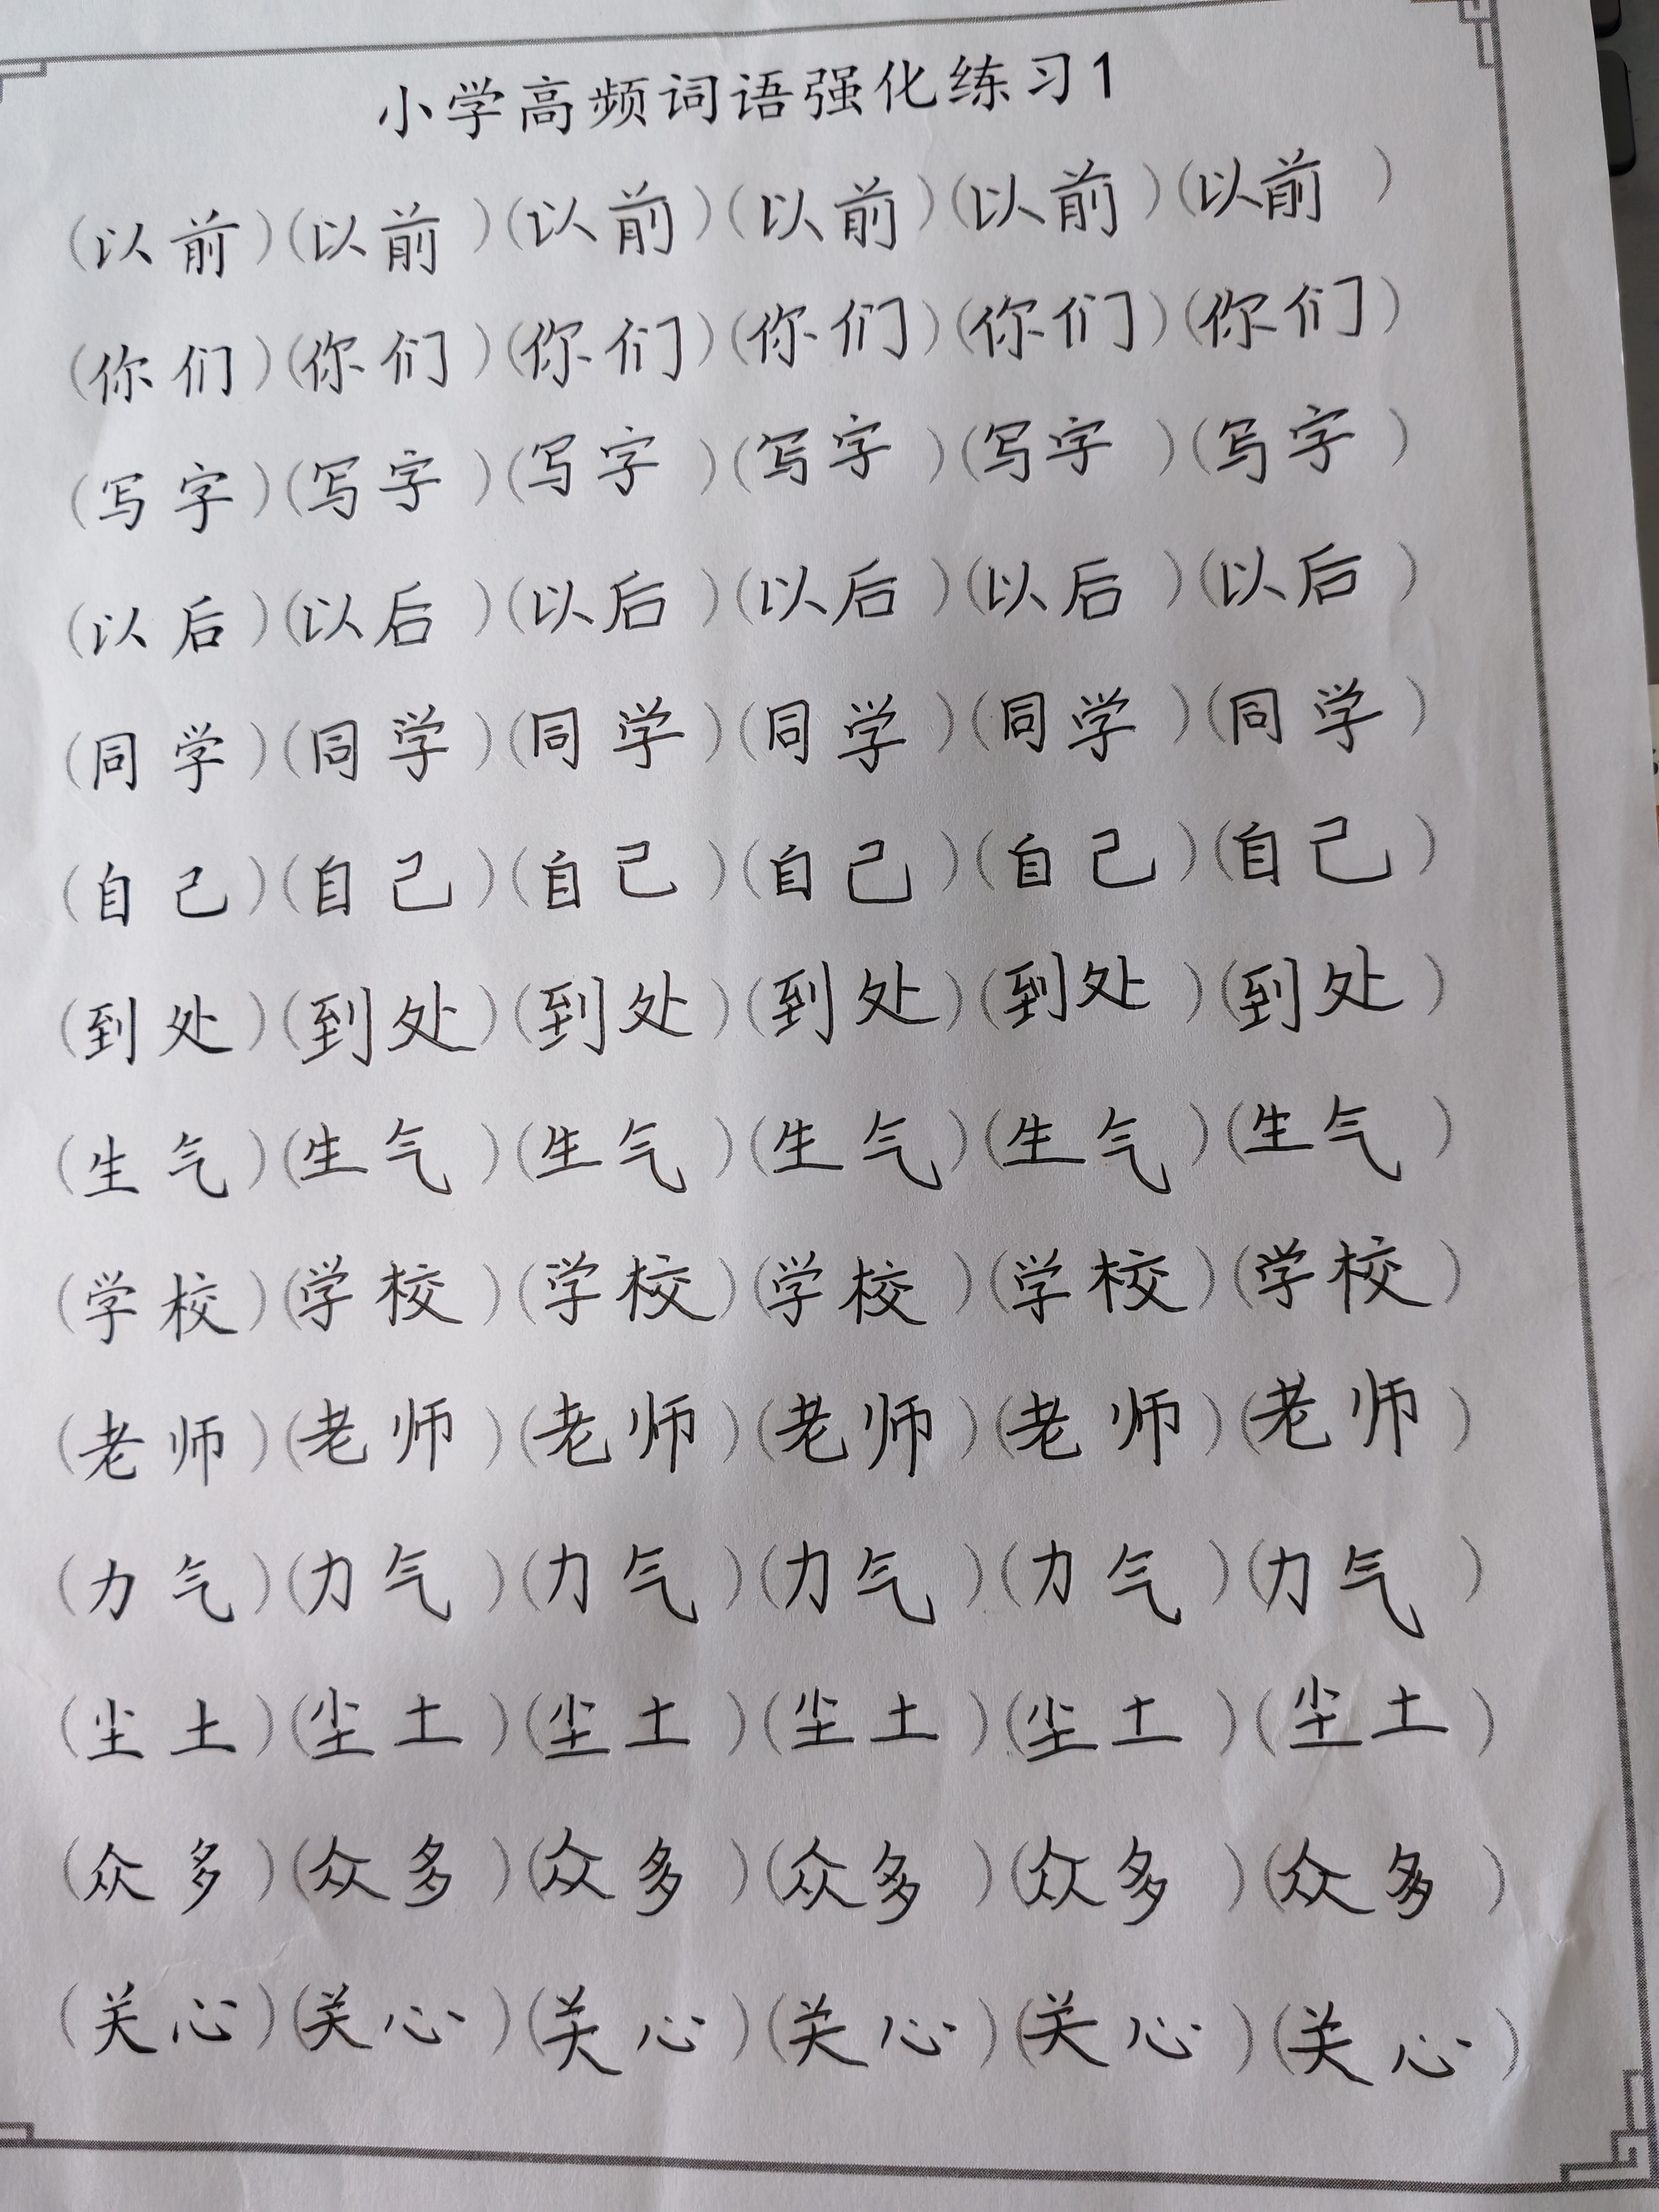 小学高频词语强化练习1
(以前)(以前)(以前)(以前)(以前)(以前)
(你们)(你们)(你们)(你们)(你们)(你们)
(写字)(写字)(写字)(写字)(写字)(写字)
(以后)(以后)(以后)(以后)(以后)(以后)
(同学)(同学)(同学)(同学)(同学)(同学)
(自己)(自己)(自己)(自己)(自己)(自己)
(到处)(到处)(到处)(到处)(到处)(到处)
(生气)(生气)(生气)(生气)(生气)(生气)
(学校)(学校)(学校)(学校)(学校)(学校)
(老师)(老师)(老师)(老师)(老师)(老师)
(力气)(力气)(力气)(力气)(力气)(力气)
(尘土)(尘土)(尘土)(尘土)(尘土)(尘土)
(众多)(众多)(众多)(众多)(众多)(众多)
(关心)(关心)(关心)(关心)(关心)(关心)